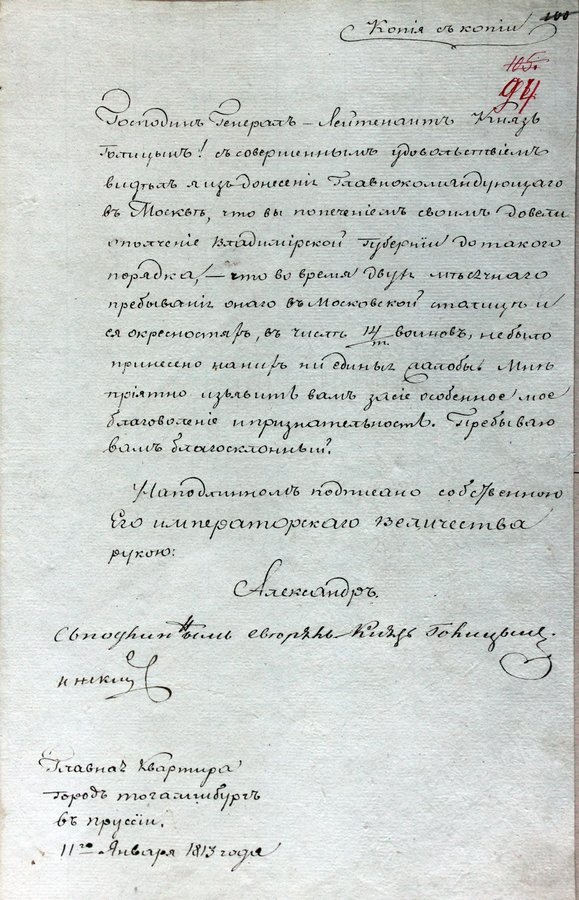 Копія съ копіи
100
105.
94
Господинъ Генералъ – Лейтенантъ Князь
Голицынъ! съ совершеннымъ удовольствіемъ
видѣлъ я изъ донесеніи Главнокомандующаго
въ Москвѣ, что вы попеченіемъ своимъ довели
ополченіе Владимірской Губерніи до такого
порядка, – что во время двухъ мѣсечнаго
пребываніи онаго въ Московской сталицѣ и
ея окресностяхъ, въ числѣ 14/т. воиновъ, небыло
принесено на нихъ ни единыя жалобы. Мнѣ
пріятно изъявить вамъ засіе особенное мое
благоволеніе и признательность. Пребываю
вамъ благосклонный.
На подлинномъ подписано собственною
Его императорскаго величества
рукою:
Александръ.
Съ подлиннымъ Князь Голицынъ
Главная Квартира
городъ
въ Пруссіи.
11го Января 1813 года